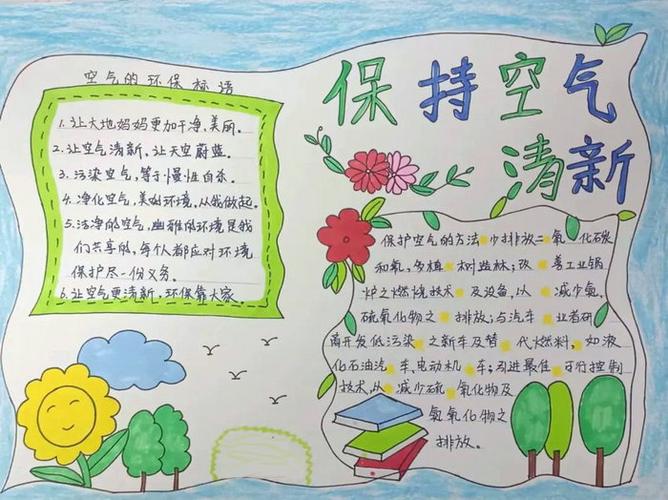 保持空气
清新
空气的环保标语
1.让大地妈妈更加干净、美丽。
2.让空气清新、让天空蔚蓝。
3.污染空气,等于慢性自杀。
4.净化空气,美好环境,从我做起。
5.洁净的空气,幽雅的环境是我
们共享的,每个人都应对环境
保护尽一份义务。
6.让空气更清新,环保靠大家。
保护空气的方法 少排放二氧化碳
和氧,多植树 造林;改善工业锅
炉之燃烧技术及设备,以减少氮
硫氧化物之排放;与汽车业者研
商开发低污染之新车及替代燃料,如液
化石油汽车、电动机车;引进最佳可行控制
技术,从减少硫氧化物及
氮氧化物之
排放。